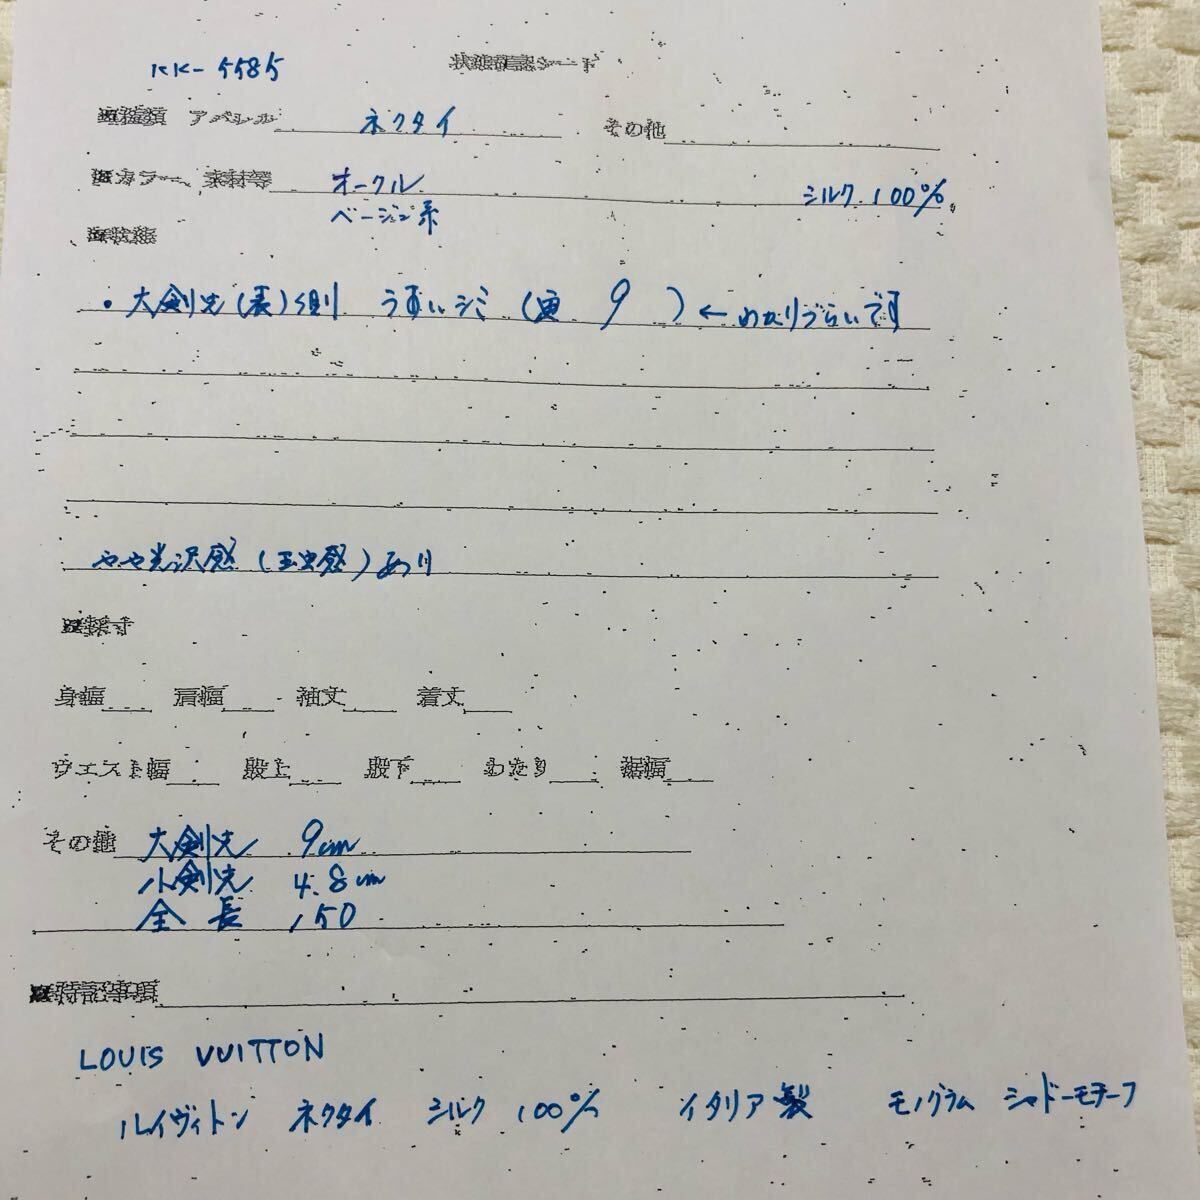 KK-5585 状態確認シート
■種類 アパレル ネクタイ その他
■カラー、素材等 オークル シルク 100%
ベージュ系
■状態
・大剣先(表)側 うすいシミ (画 9 ) ← わかりづらいです
やや光沢感 (玉虫感) あり
■採寸
身幅 肩幅 袖丈 着丈
ウエスト幅 股上 股下 わたり 裾幅
その他 大剣先 9cm
小剣先 4.8cm
全長 150
■特記事項
LOUIS VUITTON
ルイヴィトン ネクタイ シルク 100% イタリア製 モノグラム シャドーモチーフ